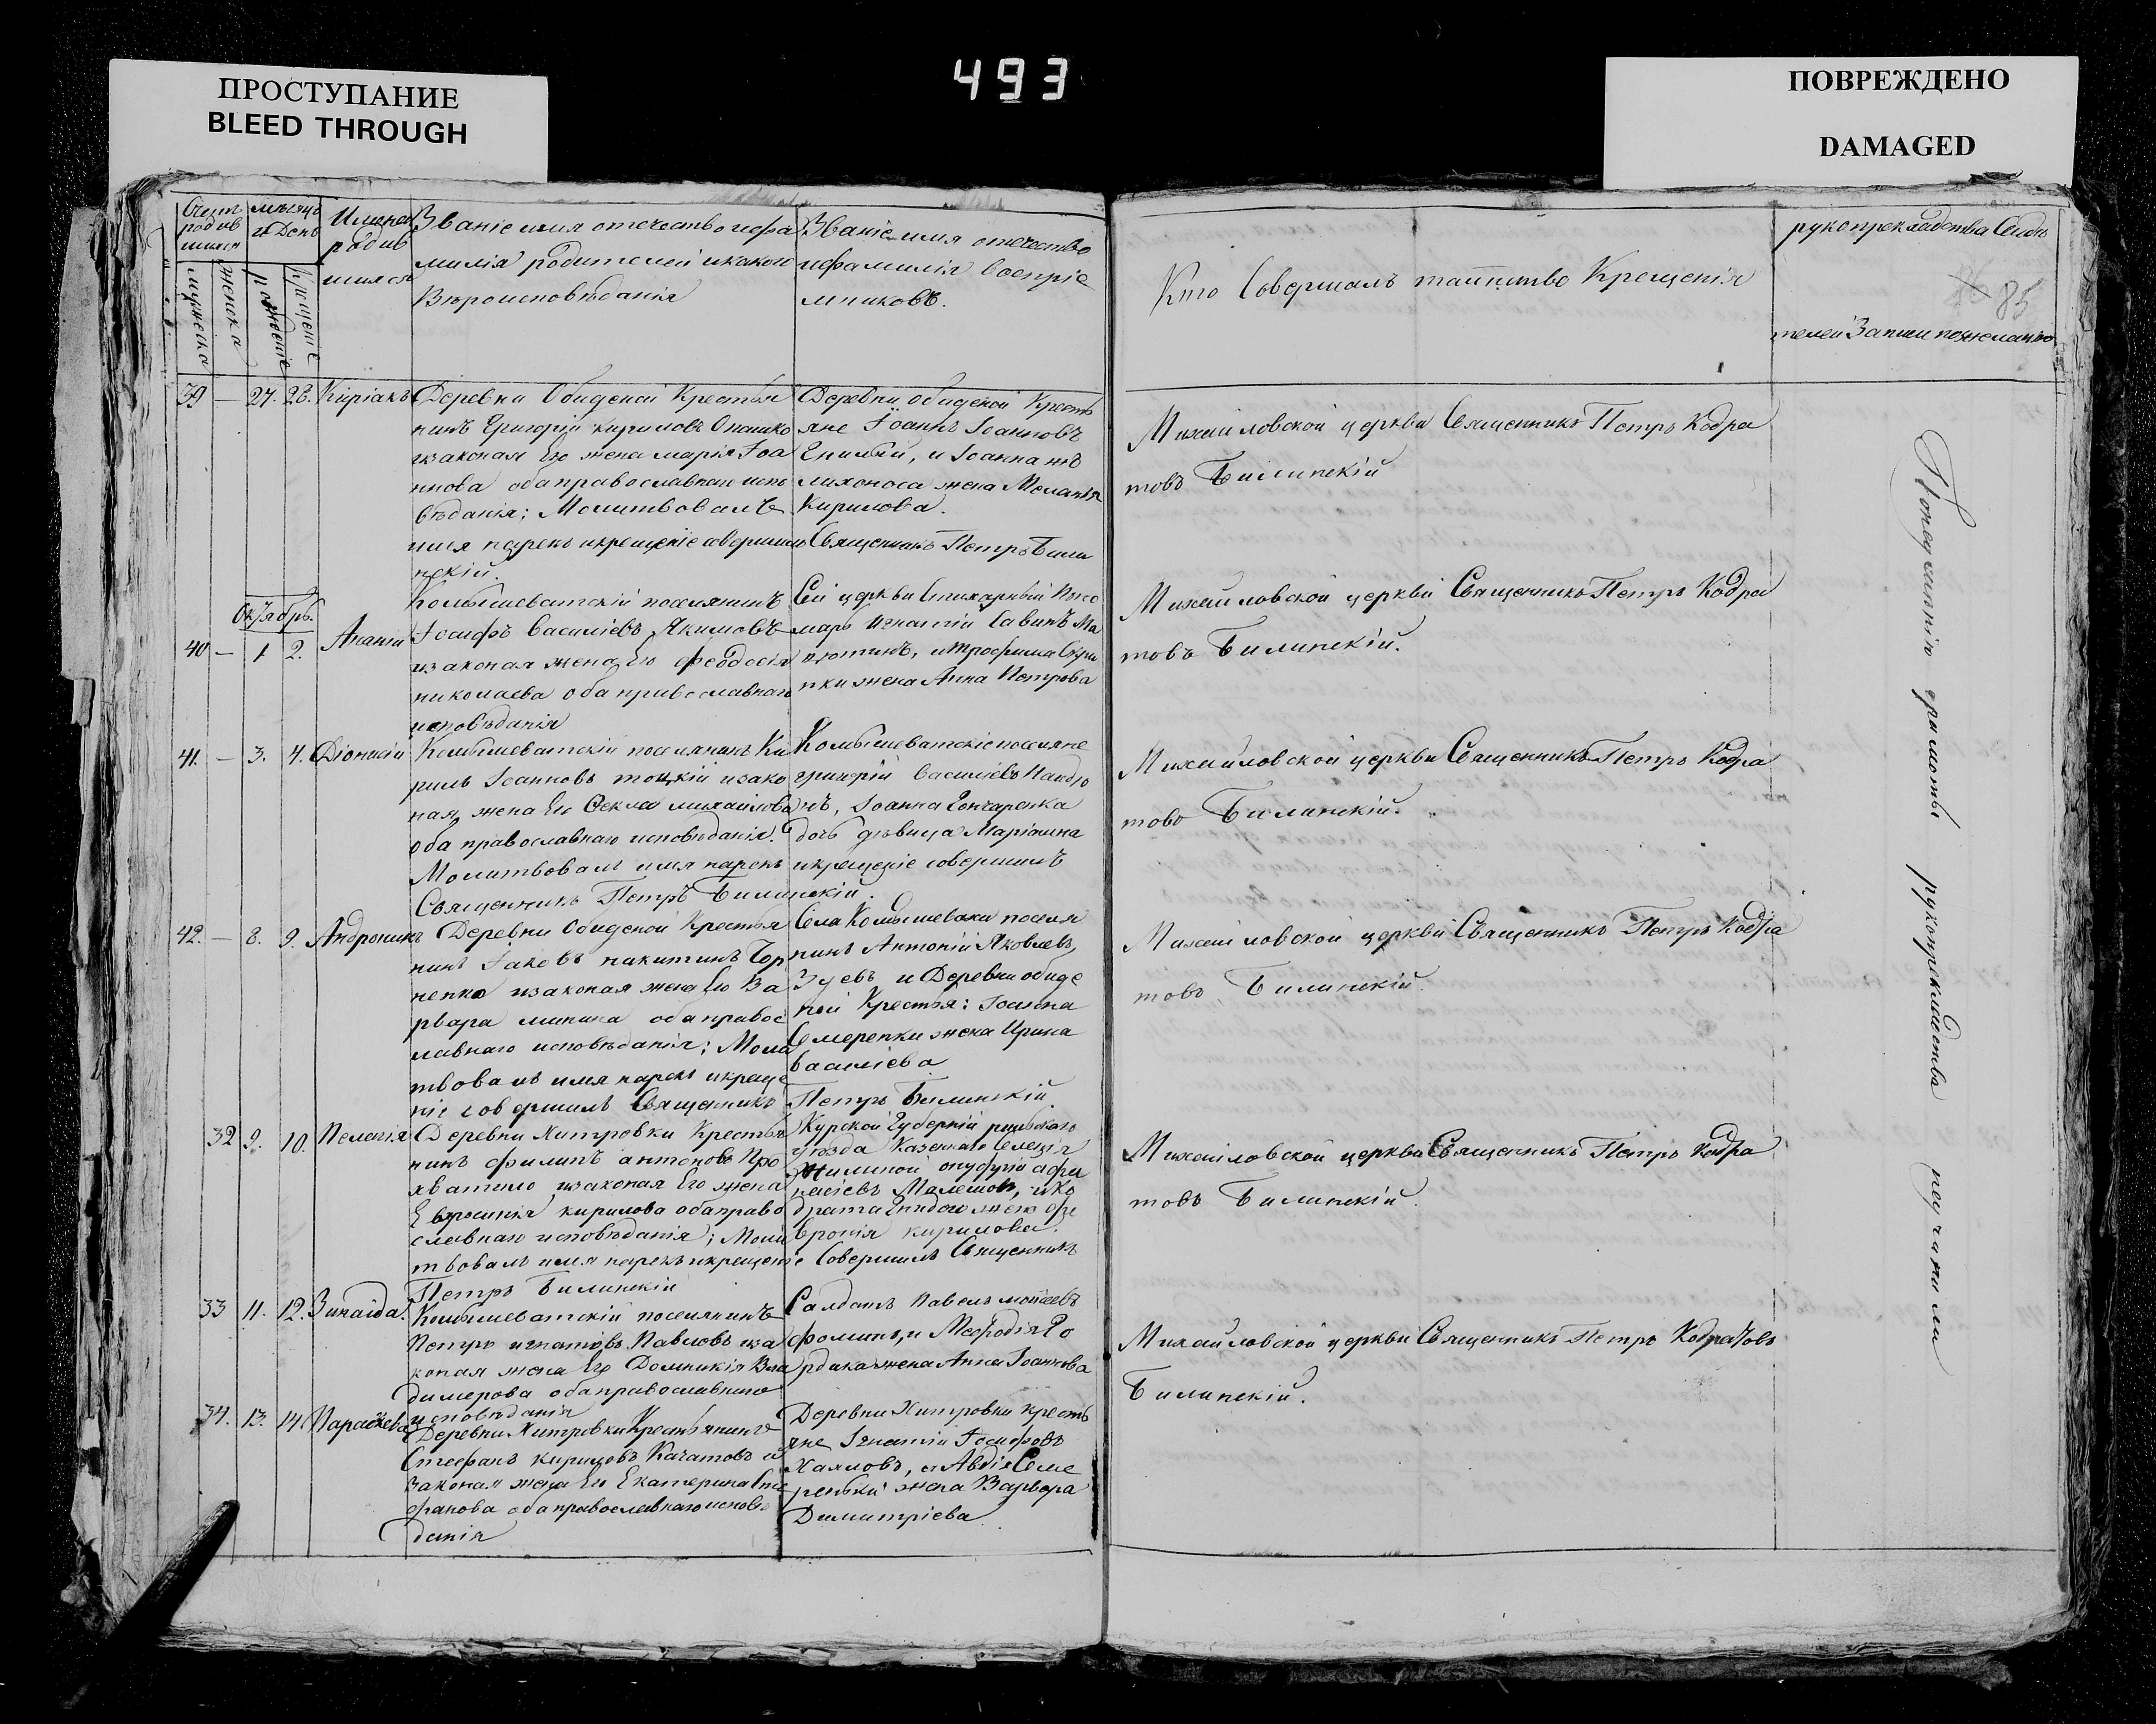 493
ПРОСТУПАНИЕ
BLEED THROUGH
ПОВРЕЖДЕНО
DAMAGED
Счетъ родив шихся
мѣсяцъ и День
Имена родив шихся
мужеска
женска
рожденіе
крещеніе
Званіе имя отечество ифа
милія родителей икакого
Вѣроисповѣданія
Званіе имя отечество
ифамилія воспріе
мниковъ.
Кто Совершалъ таинство Крещенія
рукоприкладства Свидѣ
85
телей Записи пожеланію
39 — 27. 28. Киріакъ
Деревни Обидной Крестья
нинъ Григорій кириловъ
изаконая Его жена марія Іоа
ннова оба православнаго испо
вѣданія; Молитвовалъ
имя нарекъ икрещеніе совершилъ Священникъ Петръ Били
нскій.
Деревни обидной Кресть
яне Іоаннъ Іоанновъ
и Іоанна
жена Меланія
Кирилова.
Михайловской церкви Священникъ Петръ Кодра
товъ Билинскій
Октябрь.
40 — 1 2. Ананій
Комышеватскій поселянинъ
Іосифъ василіевъ Якимовъ
изаконая жена Его феодосія
николаева оба православнаго
исповѣданія
Сей церкви
марь Игнатій Савинъ Ма
жена Анна Петрова
Михайловской церкви Священникъ Петръ Кодра
товъ Билинскій.
41. — 3. 4. Діонисій
Комышеватскій поселянинъ Ки
рилъ Іоанновъ тоцкій изако
ная жена Его Фекла михайлова
оба православнаго исповѣданія.
Молитвовалъ имя нарекъ икрещеніе совершилъ
Священникъ Петръ Билинскій.
Комышеватскіе поселяне
григорій василіевъ
Іоанна Гончаренка
дочь дѣвица Маріанна
Михайловской церкви Священникъ Петръ Кодра
товъ Билинскій.
42. — 8. 9. Андроникъ
Деревни Обидной Крестья
нинъ Іаковъ никитинъ Чор
ненко изаконая жена Его Ва
рвара минина оба правос
лавнаго исповѣданія; Моли
твовалъ имя нарекъ икреще
ніе совершилъ Священникъ Петръ Билинскій.
Села Комышевахи поселя
нинъ Антоній Яковлевъ
Зуевъ и Деревни обиде
ной Крестья: Іоанна
Семеренки жена Ирина
василіева
Михайловской церкви Священникъ Петръ Кодра
товъ Билинскій.
32 9. 10. Пелагія
Деревни Хитровки Крестья
нинъ филипъ антоновъ Про
хватило изаконая Его жена
Евросинія кирилова оба право
славнаго исповѣданія; Моли
твовалъ имя нарекъ икрещеніе Совершилъ Священникъ
Петръ Билинскій
Курской Губерніи рыльскаго
уѣзда Казеннаго Селенія
афа
насіевъ Малешов, иКо
драта жена фе
вронія кирилова.
Михайловской церкви Священникъ Петръ Кодра
товъ Билинскій.
33 11. 12. Зинаіда.
Комышеватскій поселянинъ
Петръ игнатовъ Павловъ иза
коная жена Его Домникія Вла
димерова оба православнаго
исповѣданія
Салдатъ Павелъ моісеевъ
фоминъ, и Мефодія Го
рдика жена Анна Іоаннова
Михайловской церкви Священникъ Петръ Кодратовъ
Билинскій.
34. 13. 14. Параскева
Деревни Хитровки Крестьянинъ
Стефанъ кириловъ Качатовъ и
законая жена Его Екатерина Сте
фанова оба православнаго исповѣ
данія
Деревни Хитровки кресть
яне Игнатій Іосифовъ
Халловъ, и Авдія Семе
реньки жена Варвара
Димитріева
По неуменію грамоты рукоприкладства неучинили